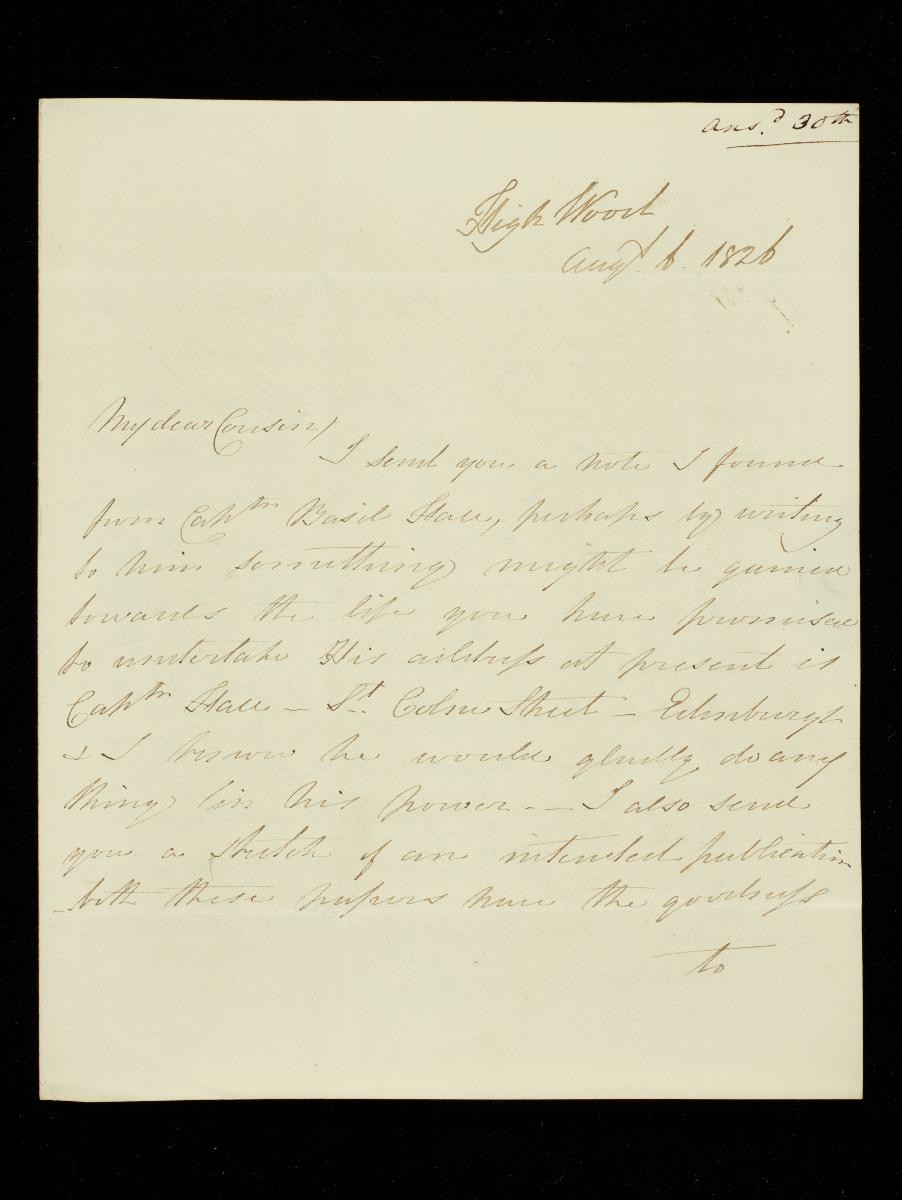 ans.d 30th
High Wood
Augt 6. 1826
My dear Cousin)
I send you a note I found
from Captn Basil Hall, perhaps by writing
to him something might be gained
towards the life you have promised
to undertake His address at present is
Captn Hall – St. Colme Street – Edinburgh
& I know he would gladly do any
thing in his power. – I also send
you a sketch of an intended publication
– both these papers have the goodness
to